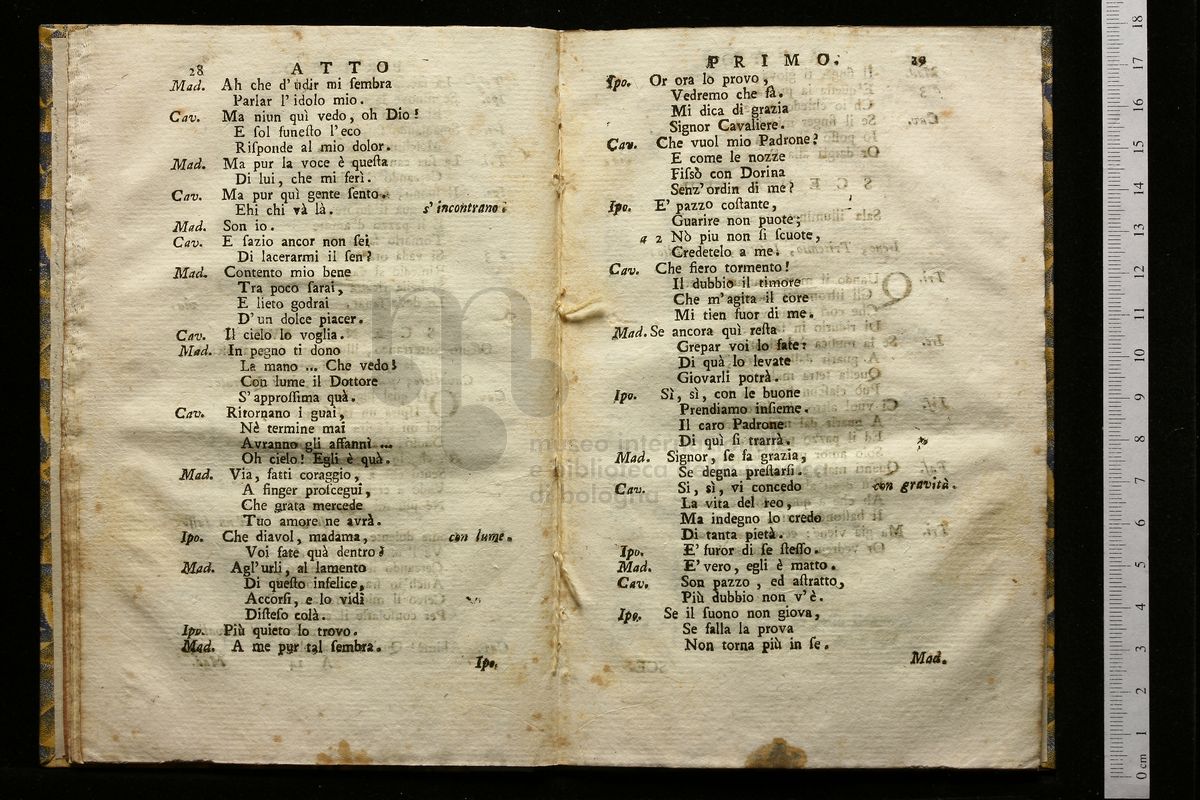 28 ATTO
Mad. Ah che d' udir mi ſembra
Parlar l' idolo mio.
Cav. Ma niun quì vedo, oh Dio!
E ſol funeſto l' eco
Riſponde al mio dolor.
Mad. Ma pur la voce è queſta
Di lui, che mi ferì.
Cav. Ma pur quì gente ſento.
Ehi chi và là. s' incontrano.
Mad. Son io.
Cav. E ſazio ancor non ſei
Di lacerarmi il ſen?
Mad. Contento mio bene
Tra poco ſarai,
E lieto godrai
D' un dolce piacer.
Cav. Il cielo lo voglia.
Mad. In pegno ti dono
La mano ... Che vedo!
Con lume il Dottore
S' approſſima quà.
Cav. Ritornano i guai,
Nè termine mai
Avranno gli affanni ...
Oh cielo! Egli è quà.
Mad. Via, fatti coraggio,
A finger proſcegui,
Che grata mercede
Tuo amore ne avrà.
Ipo. Che diavol, madama, con lume.
Voi fate quà dentro?
Mad. Agl' urli, al lamento
Di queſto infelice,
Accorſi, e lo vidi
Diſteſo colà.
Ipo. Più quieto lo trovo.
Mad. A me pur tal ſembra.
Ipo.
PRIMO. 29
Ipo. Or ora lo provo,
Vedremo che fà.
Mi dica di grazia
Signor Cavaliere.
Cav. Che vuol mio Padrone?
E come le nozze
Fiſsò con Dorina
Senz' ordin di me?
Ipo. E' pazzo coſtante,
Guarire non puote;
a 2 Nò piu non ſi ſcuote,
Credetelo a me.
Cav. Che fiero tormento!
Il dubbio il timore
Che m' agita il core
Mi tien fuor di me.
Mad. Se ancora quì reſta
Grepar voi lo fate:
Di quà lo levate
Giovarli potrà.
Ipo. Sì, sì, con le buone
Prendiamo inſieme.
Il caro Padrone
Di quì ſi trarrà.
Mad. Signor, ſe fa grazia,
Se degna preſtarſi.
Cav. Si, sì, vi concedo con gravità.
La vita del reo,
Ma indegno lo credo
Di tanta pietà.
Ipo. E' furor di ſe ſteſſo.
Mad. E' vero, egli è matto.
Cav. Son pazzo, ed aſtratto,
Più dubbio non v' è.
Ipo. Se il ſuono non giova,
Se falla la prova
Non torna più in ſe.
Mad.